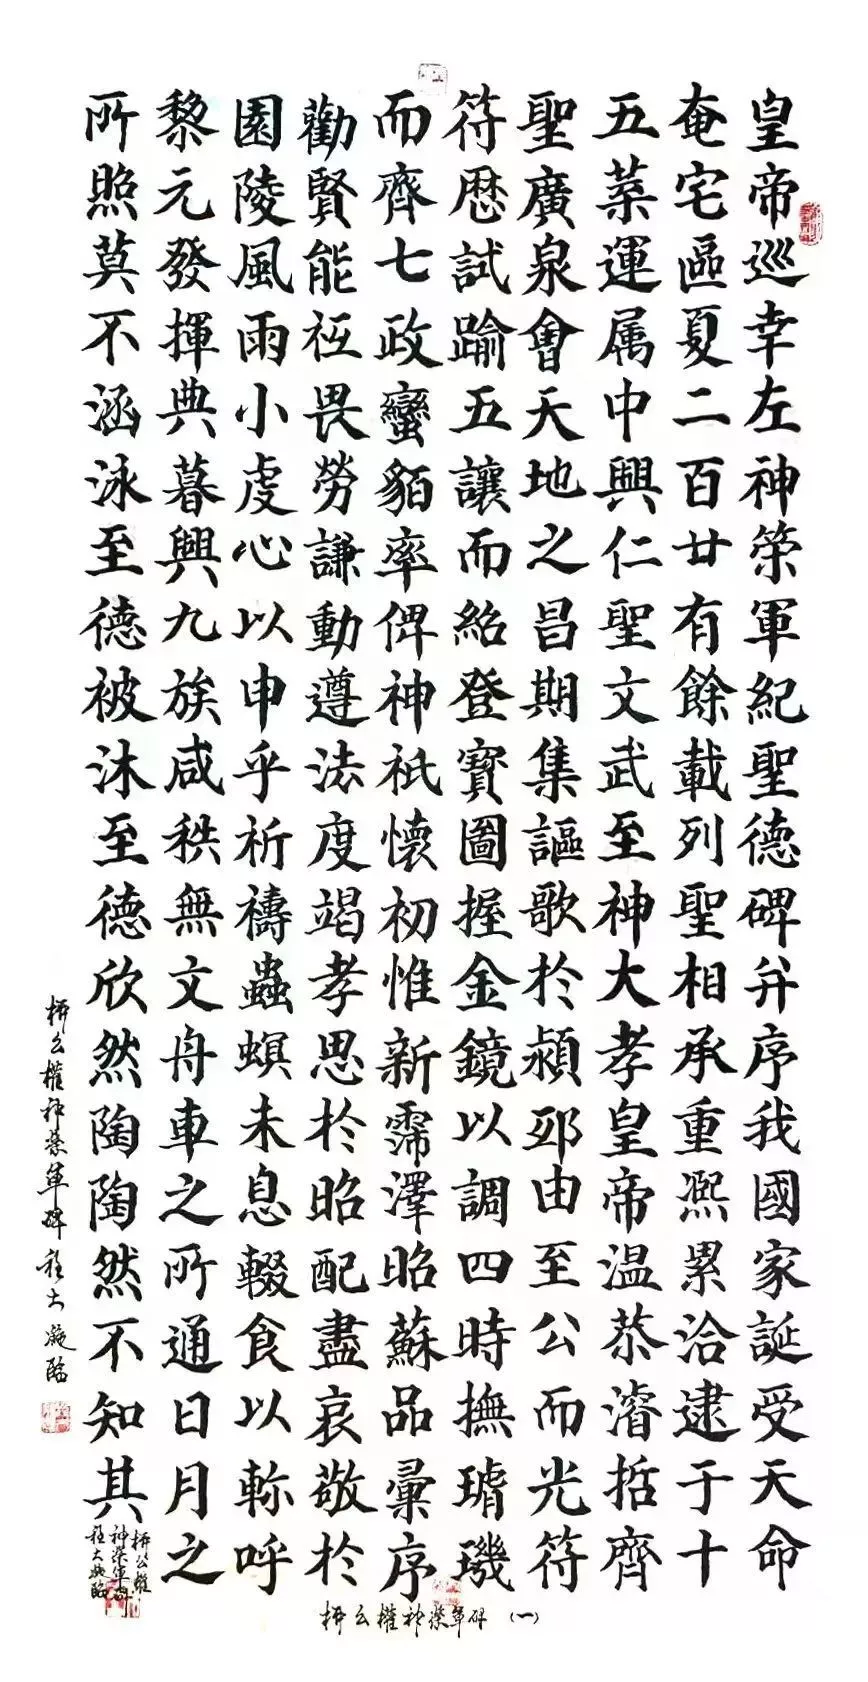 皇帝巡幸左神策軍紀聖德碑并序我國家誕受天命
奄宅區夏二百廿有餘載列聖相承重熙累洽逮于十
五葉運属中興仁聖文武至神大孝皇帝温恭濬哲齊
聖廣泉會天地之昌期集謳歌於潁邸由至公而光符
符歷試踰五讓而紹登寶圖握金鏡以調四時撫璿璣
而齊七政蠻貊率俾神祇懷初惟新霈澤昭蘇品彙序
勸賢能祗畏勞謙動遵法度竭孝思於昭配盡哀敬於
園陵風雨小虔心以申乎祈禱蟲螟未息輟食以軫呼
黎元發揮典暮興九族咸秩無文舟車之所通日月之
所照莫不涵泳至德被沐至德欣然陶陶然不知其
柳公權神策軍碑程大凝臨
柳公權
神策軍碑
程大凝臨
柳公權神策軍碑（一）